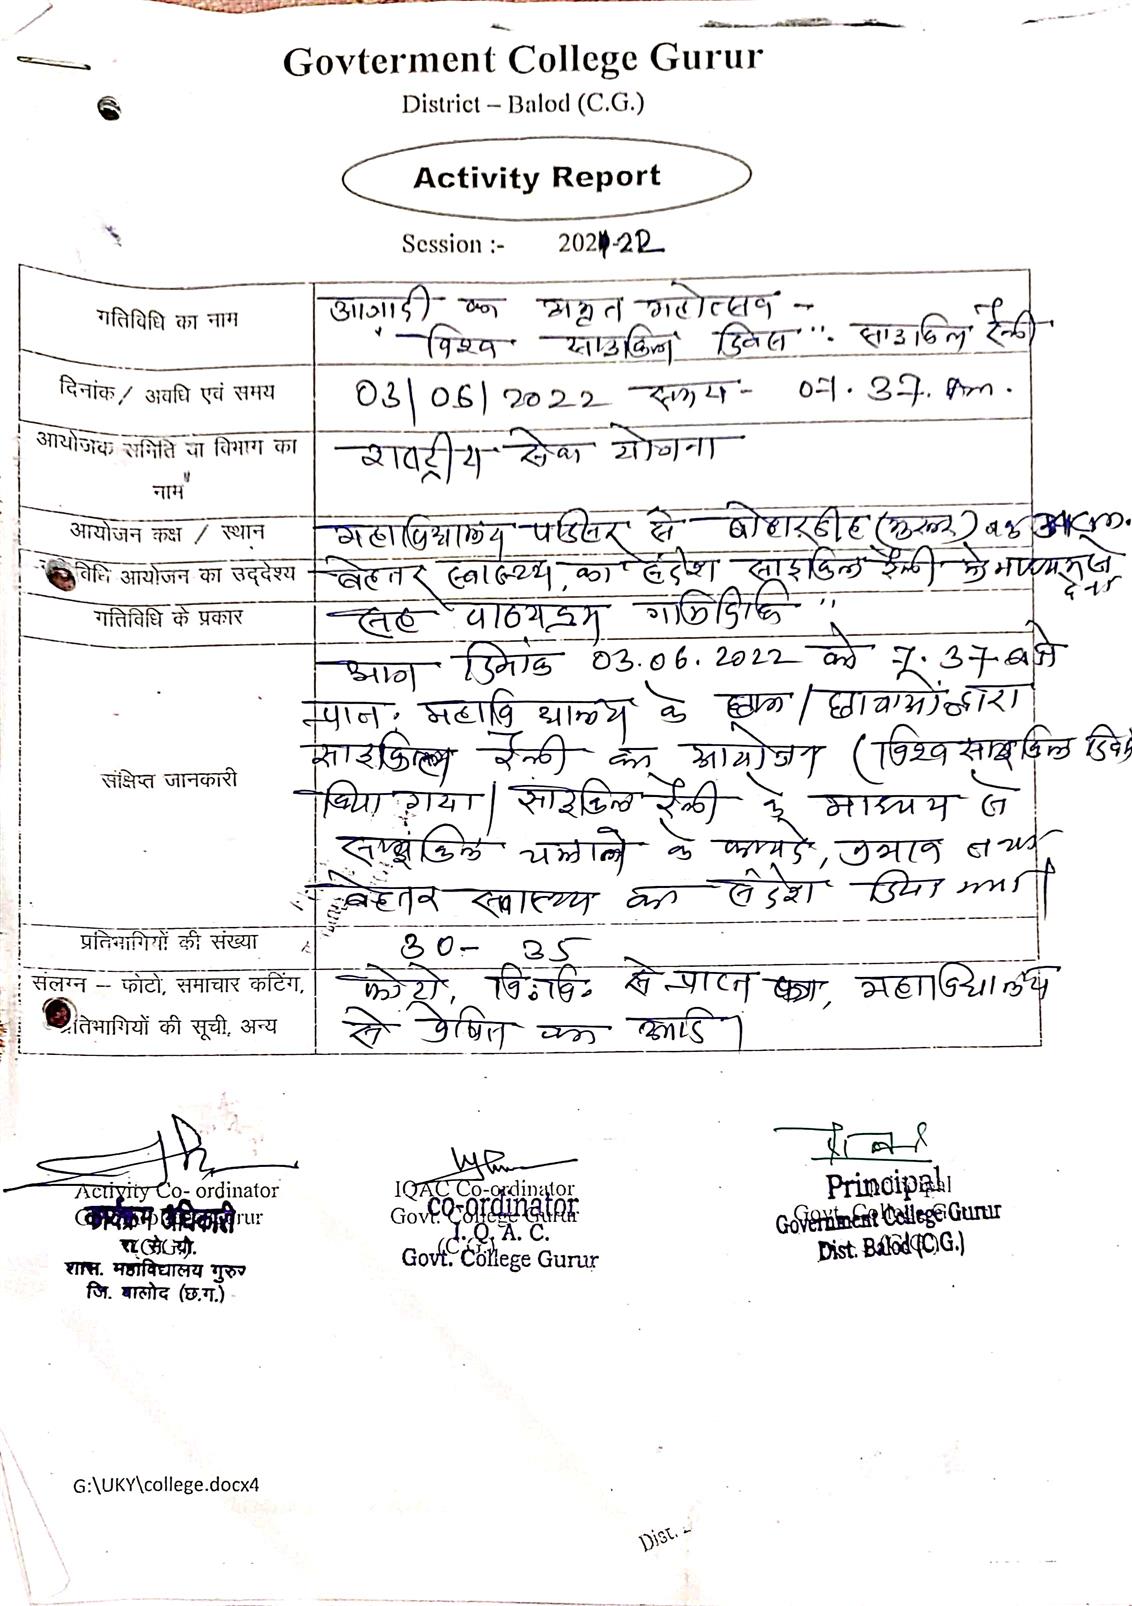 Govterment College Gurur
District – Balod (C.G.)
Activity Report
Session :- 2021-22
गतिविधि का नाम
आजादी का अमृत महोत्सव -
"विश्व साइकिल दिवस". साइकिल रैली
दिनांक / अवधि एवं समय
03/06/2022 समय - 07.37. Am.
आयोजक समिति या विभाग का
नाम
राष्ट्रीय सेवा योजना
आयोजन कक्ष / स्थान
महाविद्यालय परिसर से बोहारडीह
विधि आयोजन का उद्देश्य
बेहतर स्वास्थ्य का संदेश साइकिल रैली के माध्यम से
देना
गतिविधि के प्रकार
सह पाठ्यक्रम गतिविधि"
संक्षिप्त जानकारी
आज दिनांक 03.06.2022 को 7.37 बजे
महाविद्यालय के छात्र/छात्राओं द्वारा
साइकिल रैली का आयोजन (विश्व साइकिल दिवस
किया गया। साइकिल रैली के माध्यम से
साइकिल चलाने के फायदे, प्रभाव
बेहतर स्वास्थ्य का संदेश दिया गया।
प्रतिभागियों की संख्या
30- 35
संलग्न – फोटो, समाचार कटिंग,
प्रतिभागियों की सूची, अन्य
फोटो, वि.वि. से प्राप्त पत्र, महाविद्यालय
से प्रेषित पत्र आदि।
Activity Co- ordinator
कार्यक्रम अधिकारी
रा.से.यो.
शास. महाविद्यालय गुरुर
जि. बालोद (छ.ग.)
IQAC Co-ordinator
Govt. College Gurur
(C.G.)
CO-ordinator
I. Q. A. C.
Govt. College Gurur
Principal
Government College Gurur
Dist. Balod (C.G.)
G:\UKY\college.docx4
Dist. -